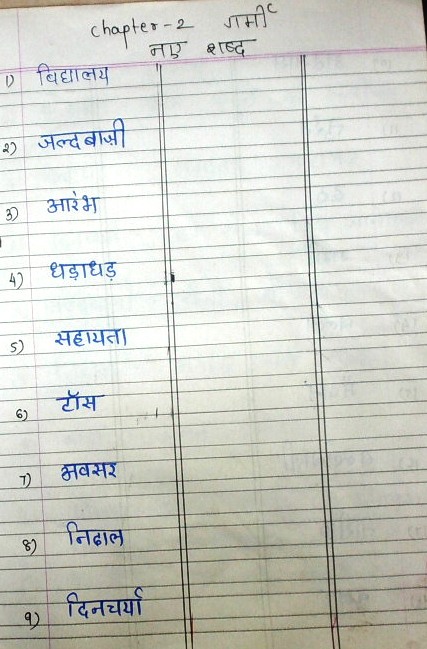 chapter-2 गर्मी
नए शब्द
1) विद्यालय
2) जल्दबाज़ी
3) आरंभ
4) धड़ाधड़
5) सहायता
6) टॉस
7) अवसर
8) निढाल
9) दिनचर्या